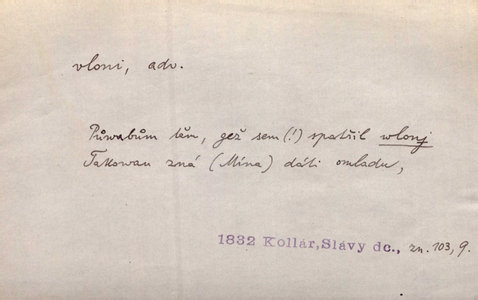 vloni, adv.
Půwabům těm, gež sem (!) spatřil wlonj
Takowau zná (Mína) dáti omladu,
1832 Kollár, Slávy dc., zn. 103, 9.